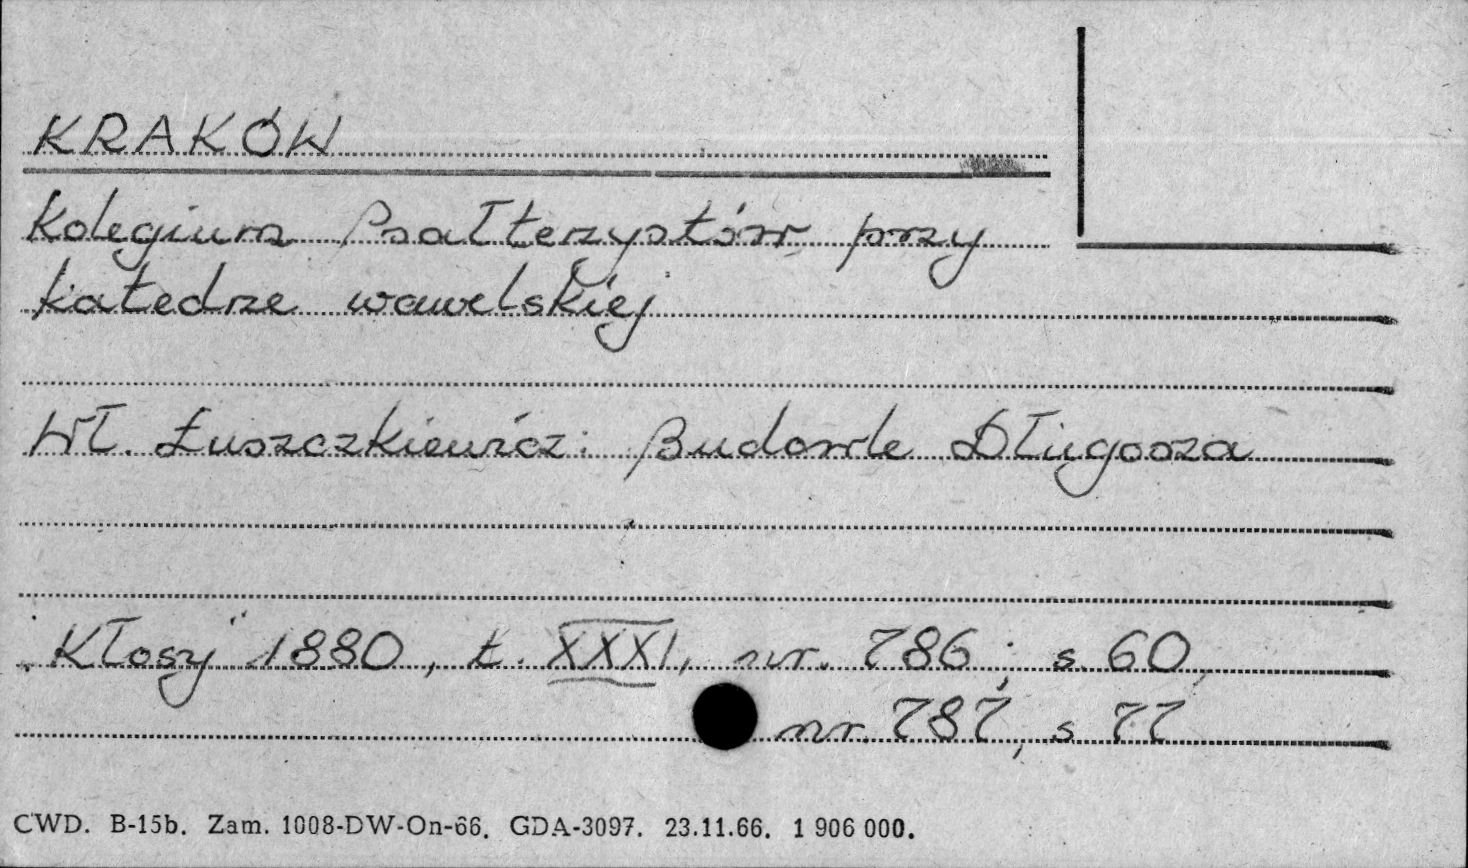 KRAKÓW
Kolegium Psałterzystów przy
katedrze wawelskiej
Wł. Łuszczkiewicz: Budowle Długosza
„Kłosy" 1880, t. XXXI, nr. 786; s. 60,
nr. 787, s 77
CWD. B-15b. Zam. 1008-DW-On-66. GDA-3097. 23.11.66. 1 906 000.